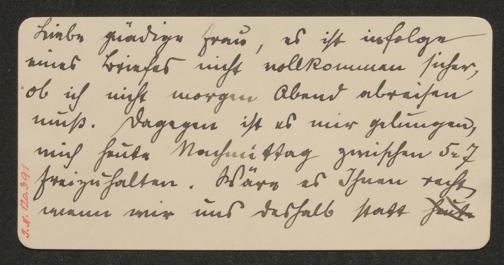 Liebe gnädige Frau, es ist infolge
eines Briefes nicht vollkommen sicher,
ob ich nicht morgen Abend abreisen
muß. Dagegen ist es mir gelungen,
mich heute Nachmittag zwischen 5-7
freizuhalten. Wäre es Ihnen recht
wenn wir uns deshalb statt heute